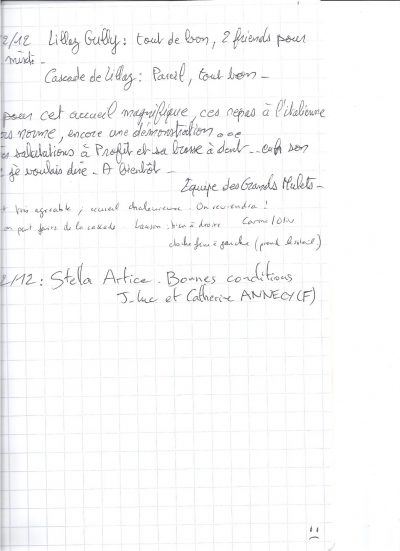 2/12 Lillaz Gully : tout de bon, 2 friends pour
mixte -
Cascade de Lillaz : Pareil, tout bon -
pour cet accueil magnifique, ces repas à l'italienne
norme, encore une démonstration...
salutations à Profit et sa brosse à dent... enfin son
je voulais dire - A bientôt -
Equipe des Grands Mulets -
+ très agréable, accueil chaleureux. On reviendra !
on peut faire de la cascade bien à droite
à gauche (prend le soleil)
2/12 : Stella Artice - Bonnes conditions
J-Luc et Catherine ANNECY (F)